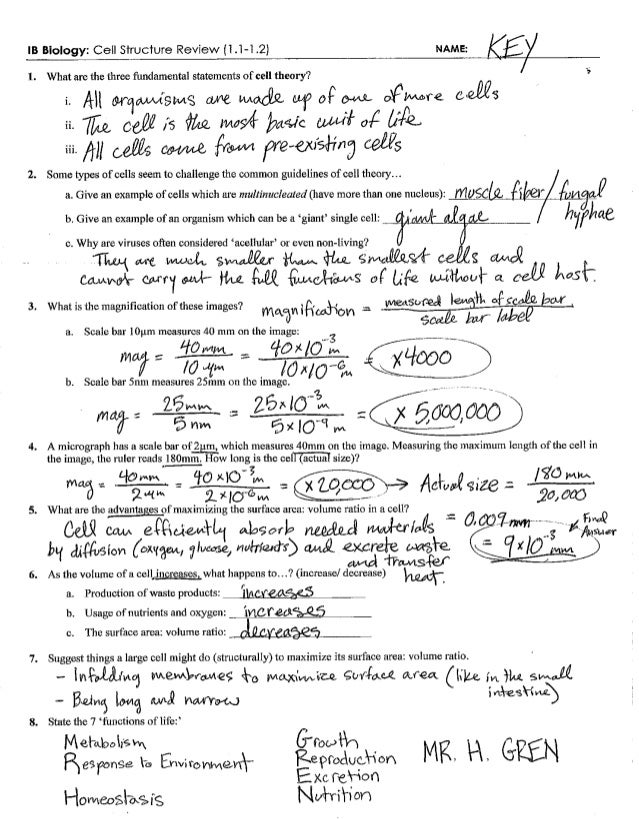 IB Biology: Cell Structure Review (1.1-1.2) NAME: KEY
1. What are the three fundamental statements of cell theory?
i. All organisms are made up of one or more cells
ii. The cell is the most basic unit of life
iii. All cells come from pre-existing cells
2. Some types of cells seem to challenge the common guidelines of cell theory…
a. Give an example of cells which are multinucleated (have more than one nucleus): muscle fiber / fungal hyphae
b. Give an example of an organism which can be a 'giant' single cell: giant algae
c. Why are viruses often considered 'acellular' or even non-living?
They are much smaller than the smallest cells and
cannot carry out the full functions of life without a cell host.
3. What is the magnification of these images? magnification = measured length of scale bar / scale bar label
a. Scale bar 10µm measures 40 mm on the image:
mag = 40mm / 10 µm = 40×10⁻³m / 10×10⁻⁶m = ×4000
b. Scale bar 5nm measures 25mm on the image.
mag = 25mm / 5nm = 25×10⁻³m / 5×10⁻⁹m = × 5,000,000
4. A micrograph has a scale bar of 2µm, which measures 40mm on the image. Measuring the maximum length of the cell in
the image, the ruler reads 180mm. How long is the cell (actual size)?
mag = 40mm / 2µm = 40×10⁻³m / 2×10⁻⁶m = ×20,000 → Actual size = 180mm / 20,000
= 0.009mm
= 9×10⁻³ mm Final Answer
5. What are the advantages of maximizing the surface area: volume ratio in a cell?
Cell can efficiently absorb needed materials
by diffusion (oxygen, glucose, nutrients) and excrete waste
and transfer
heat.
6. As the volume of a cell increases, what happens to…? (increase/ decrease)
a. Production of waste products: increases
b. Usage of nutrients and oxygen: increases
c. The surface area: volume ratio: decreases
7. Suggest things a large cell might do (structurally) to maximize its surface area: volume ratio.
- Infolding membranes to maximize surface area (like in the small
intestine)
- Being long and narrow
8. State the 7 'functions of life:'
Metabolism
Response to Environment
Homeostasis
Growth
Reproduction
Excretion
Nutrition
MR. H. GREN